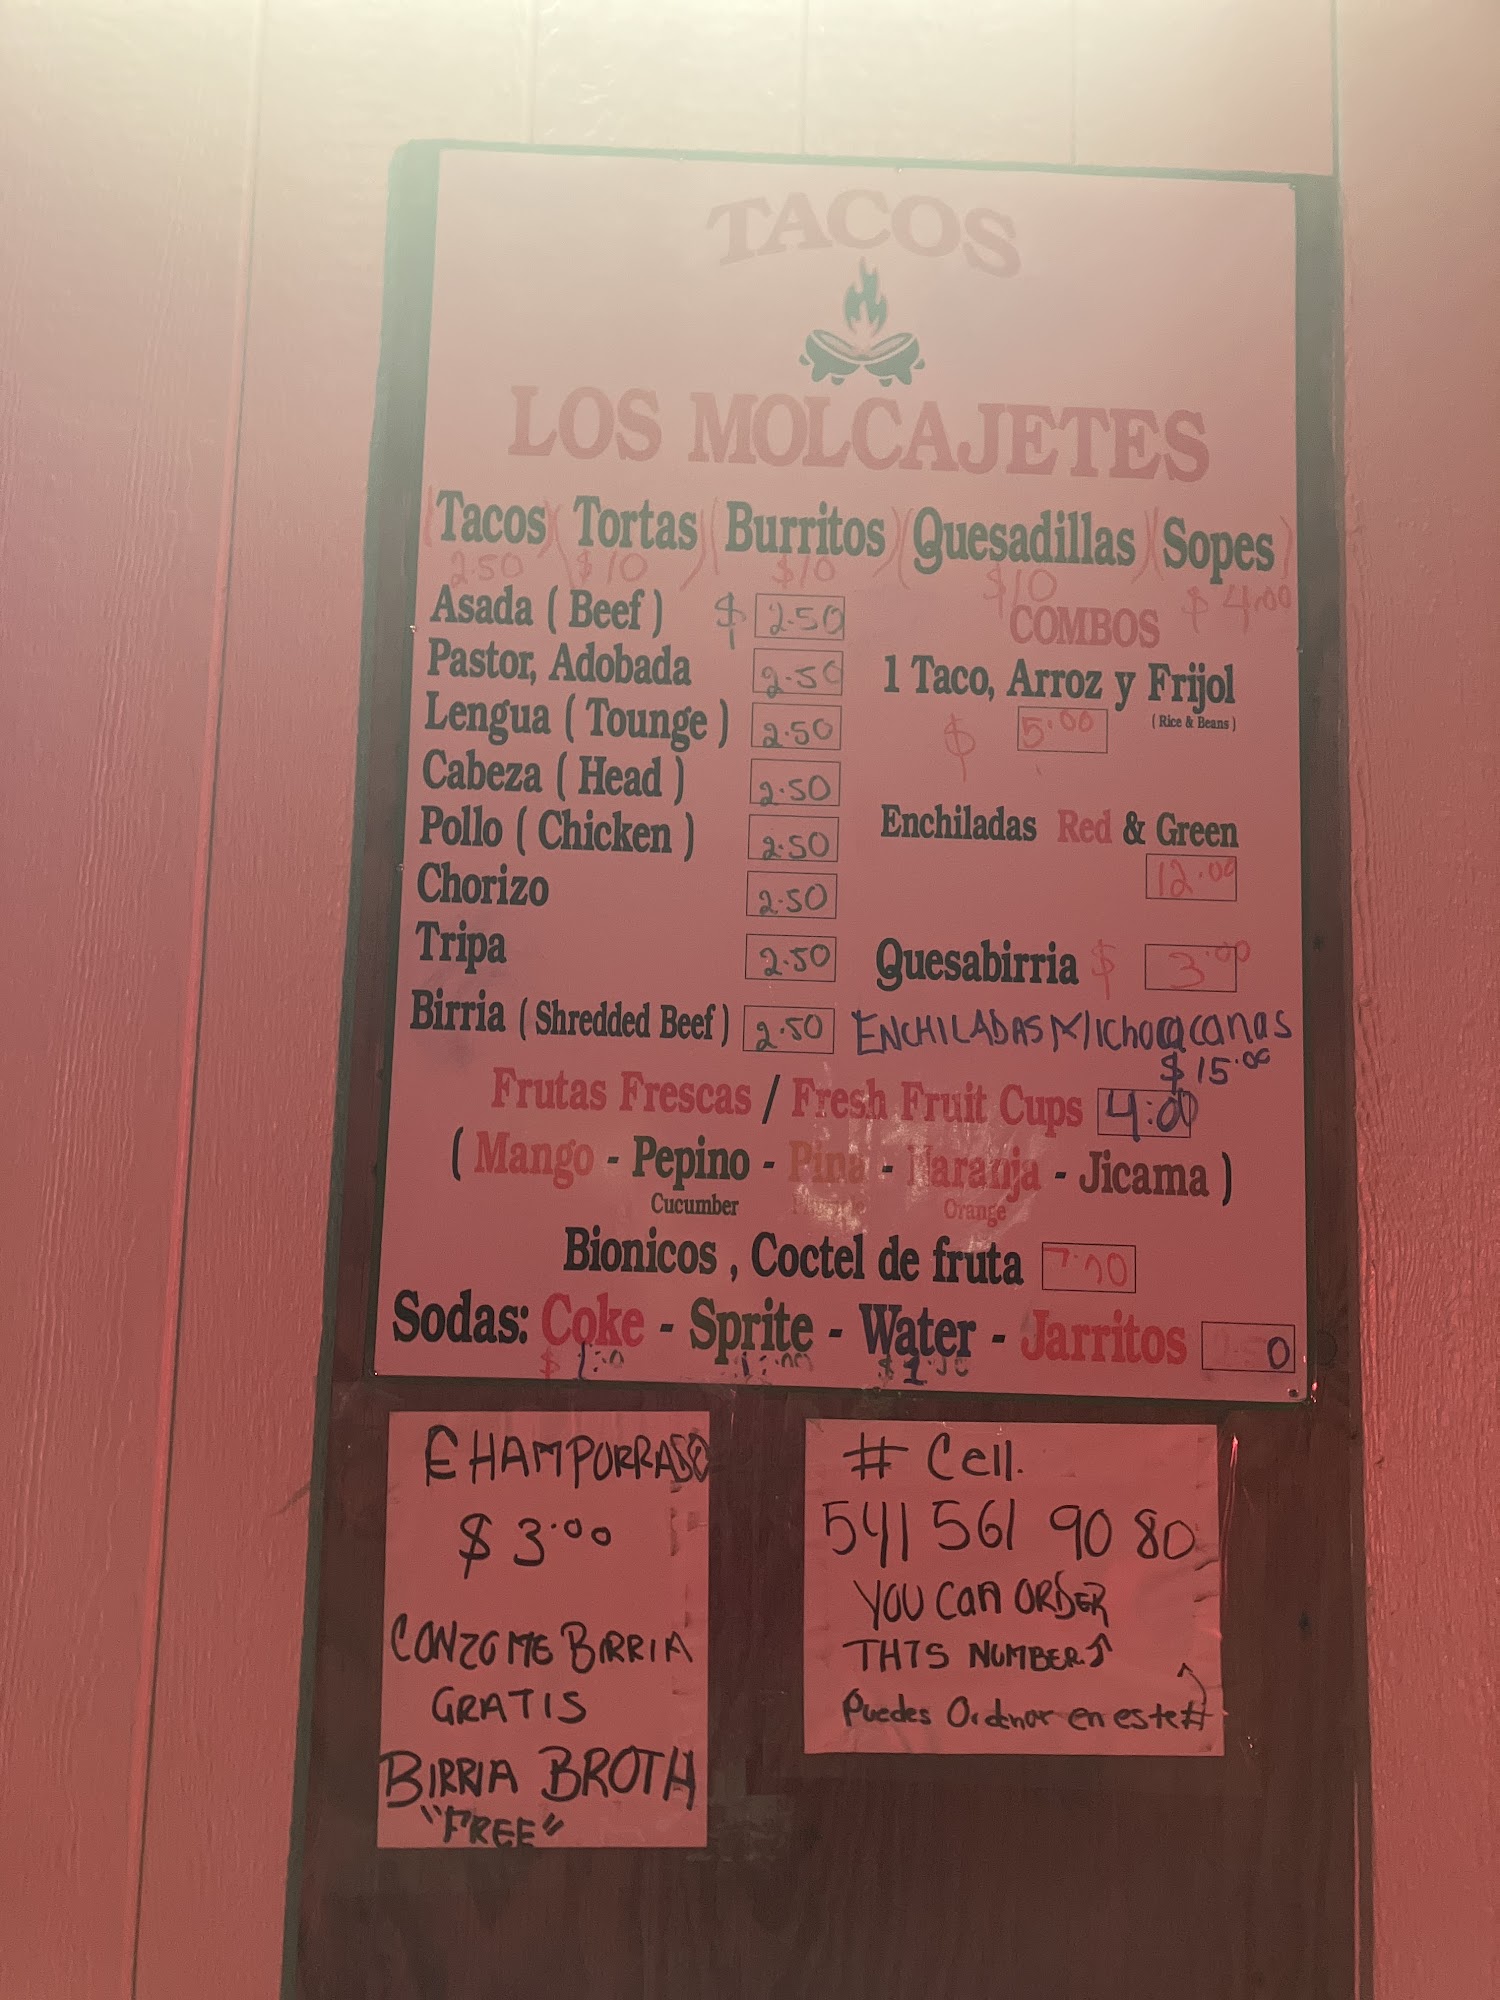 TACOS
LOS MOLCAJETES
(Tacos) (Tortas) (Burritos) (Quesadillas) (Sopes)
2.50 $10 $10 $10 $4.00
Asada ( Beef ) $ 2.50
Pastor, Adobada 2.50
Lengua ( Tounge ) 2.50
Cabeza ( Head ) 2.50
Pollo ( Chicken ) 2.50
Chorizo 2.50
Tripa 2.50
Birria ( Shredded Beef ) 2.50
COMBOS
1 Taco, Arroz y Frijol
( Rice & Beans )
$ 5.00
Enchiladas Red & Green
12.00
Quesabirria $ 3.00
ENCHILADAS Michoacanas
$15.00
Frutas Frescas / Fresh Fruit Cups 4:00
( Mango - Pepino - Pina - Naranja - Jicama )
Cucumber Orange
Bionicos , Coctel de fruta
Sodas: Coke - Sprite - Water - Jarritos
CHAMPURRADO
$ 3.00
CONZOME BIRRIA
GRATIS
BIRRIA BROTH
"FREE"
# Cell.
541 561 90 80
YOU CAN ORDER
THIS NUMBER.↑
Puedes Ordenar en este #